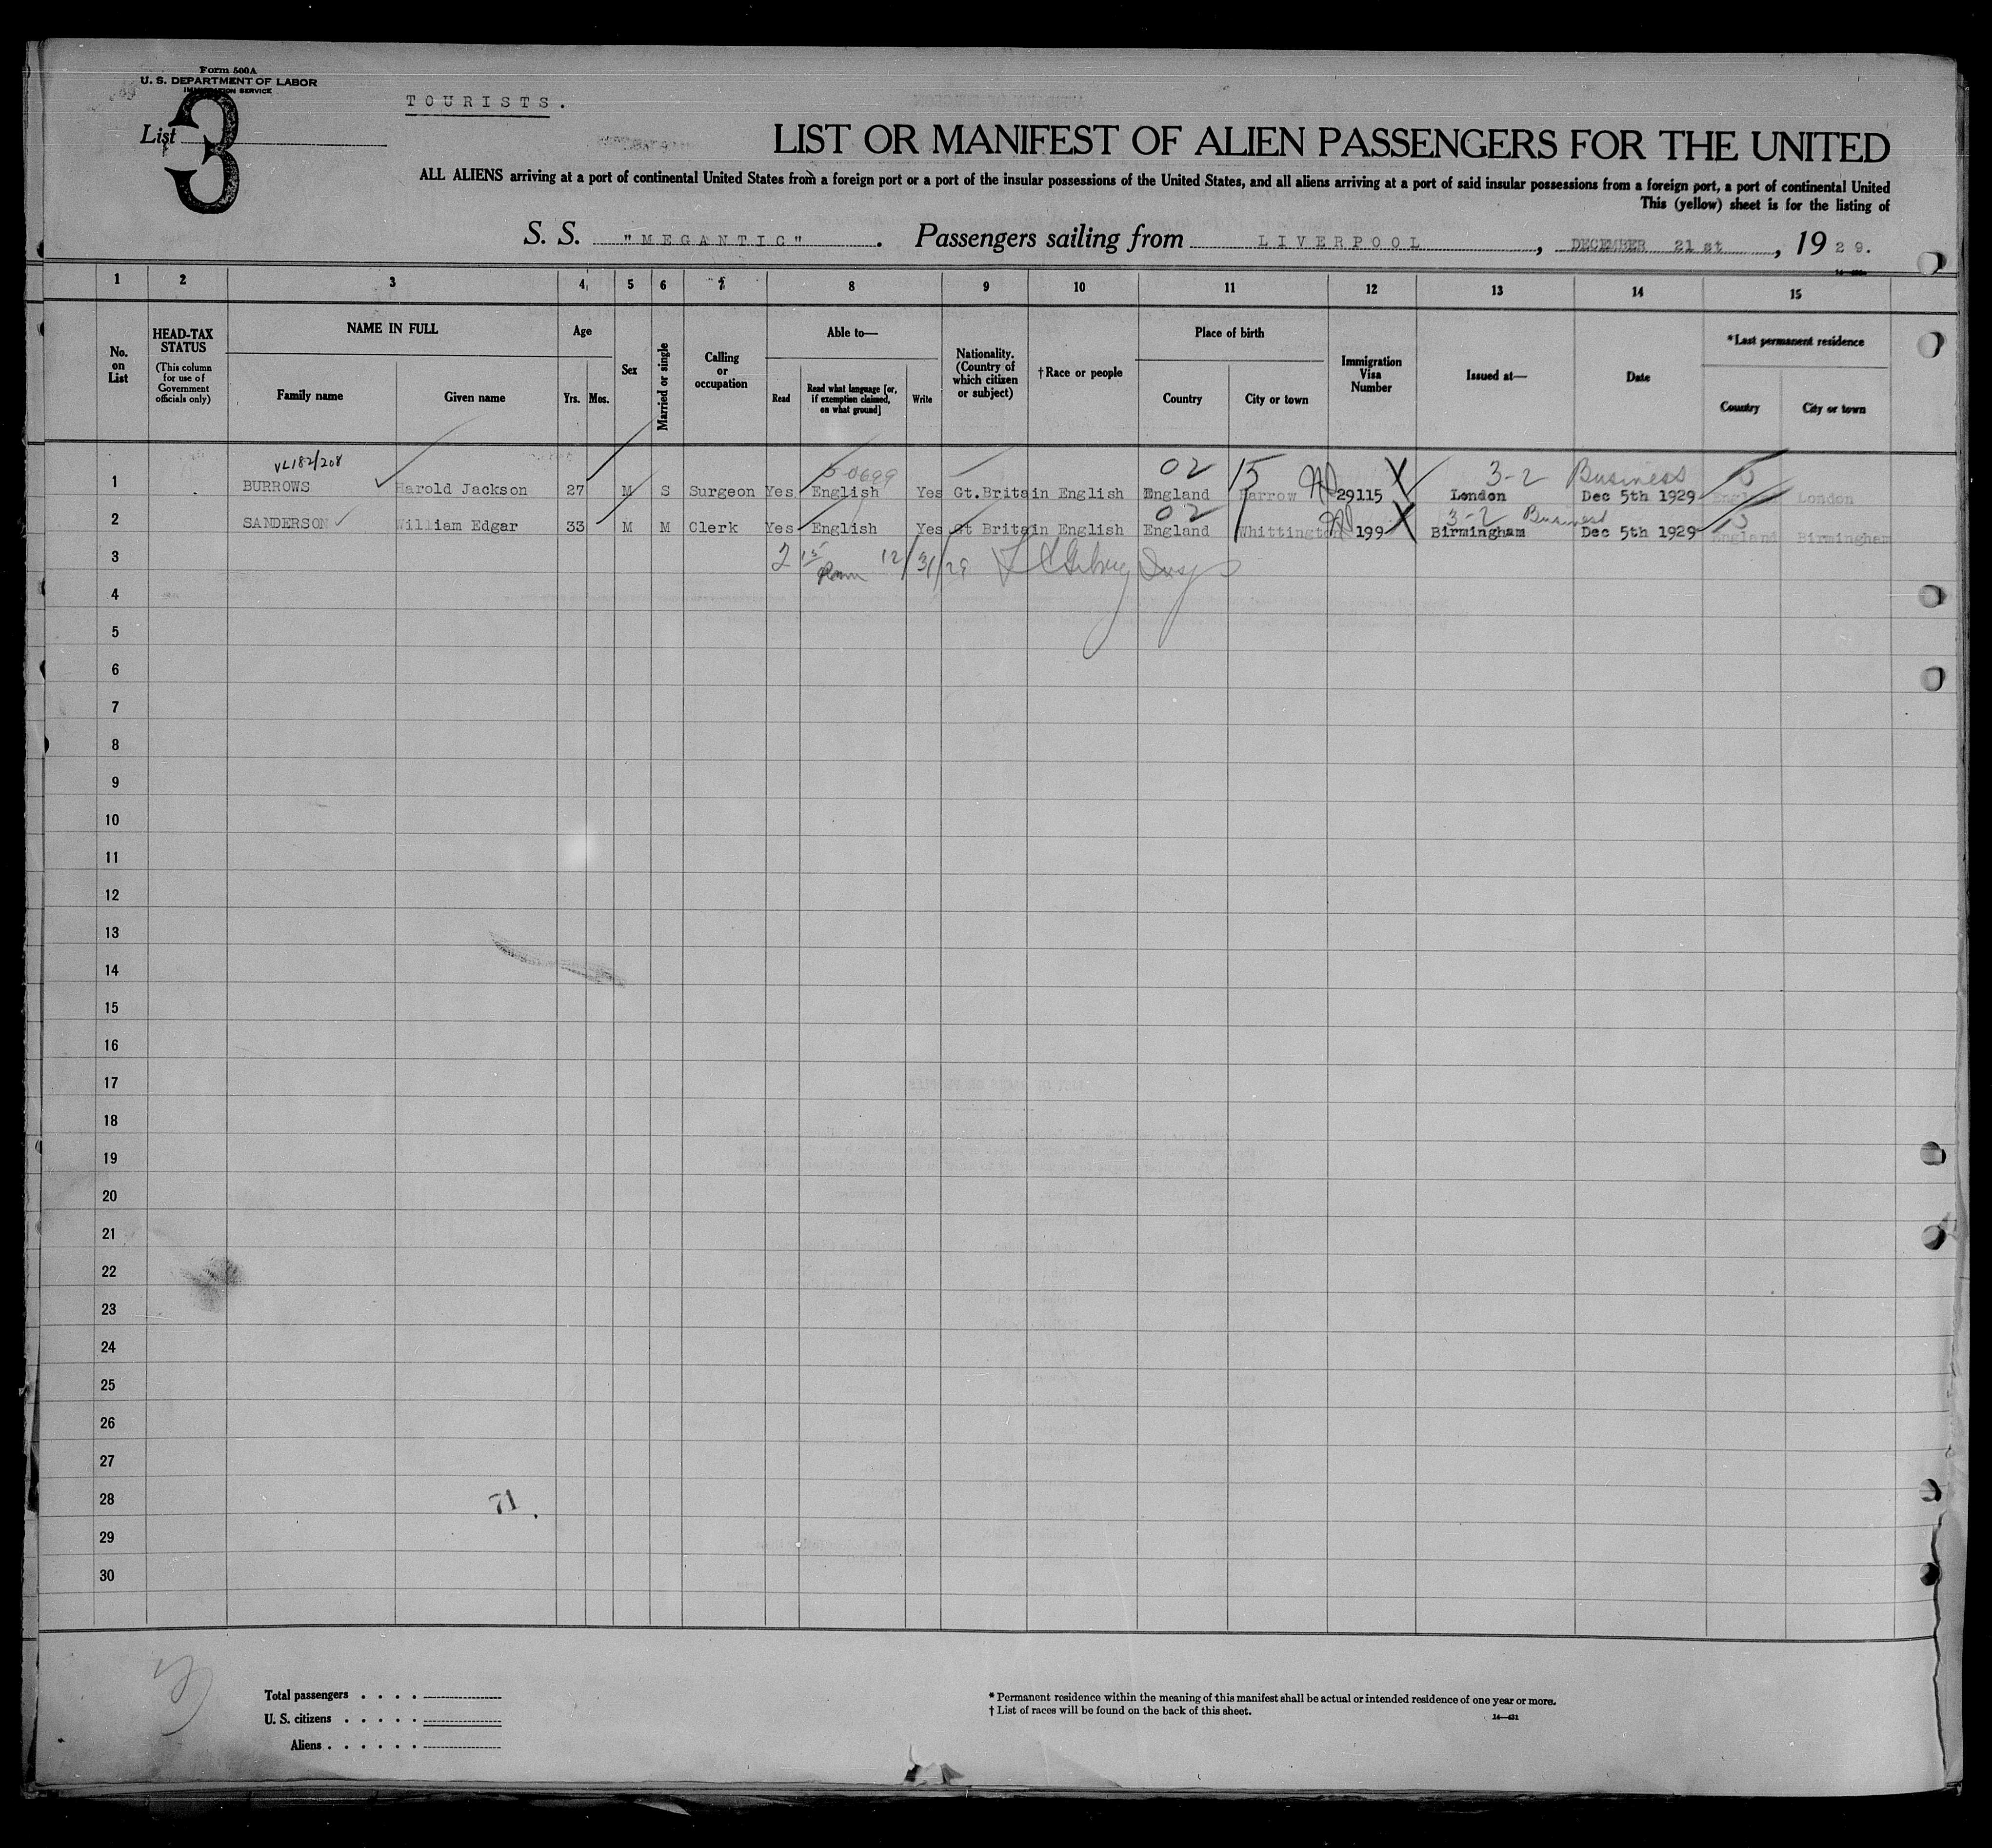 Form 500A
U. S. DEPARTMENT OF LABOR
IMMIGRATION SERVICE
TOURISTS.
List 3
LIST OR MANIFEST OF ALIEN PASSENGERS FOR THE UNITED
ALL ALIENS arriving at a port of continental United States from a foreign port or a port of the insular possessions of the United States, and all aliens arriving at a port of said insular possessions from a foreign port, a port of continental United
This (yellow) sheet is for the listing of
S. S. "MEGANTIC". Passengers sailing from LIVERPOOL, DECEMBER 21st, 1929.
1 2 3 4 5 6 7 8 9 10 11 12 13 14 15
No. on List
HEAD-TAX STATUS
(This column for use of Government officials only)
NAME IN FULL
Family name Given name
Age
Yrs. Mos.
Sex
Married or single
Calling or occupation
Able to—
Read Read what language [or, if exemption claimed, on what ground] Write
Nationality. (Country of which citizen or subject)
†Race or people
Place of birth
Country City or town
Immigration Visa Number
Issued at—
Date
*Last permanent residence
Country City or town
VL182/208 5-0699 02 15 3-2 Business
1 BURROWS Harold Jackson 27 M S Surgeon Yes English Yes Gt.Britain English England Harrow 29115 London Dec 5th 1929 England London
02 3-2 Business
2 SANDERSON William Edgar 33 M M Clerk Yes English Yes Gt Britain English England Whittington 199 Birmingham Dec 5th 1929 England Birmingham
3 2 15 12/31/29
4
5
6
7
8
9
10
11
12
13
14
15
16
17
18
19
20
21
22
23
24
25
26
27
28 71
29
30
Total passengers . . . .
U. S. citizens . . . . .
Aliens . . . . . .
* Permanent residence within the meaning of this manifest shall be actual or intended residence of one year or more.
† List of races will be found on the back of this sheet.
14—431